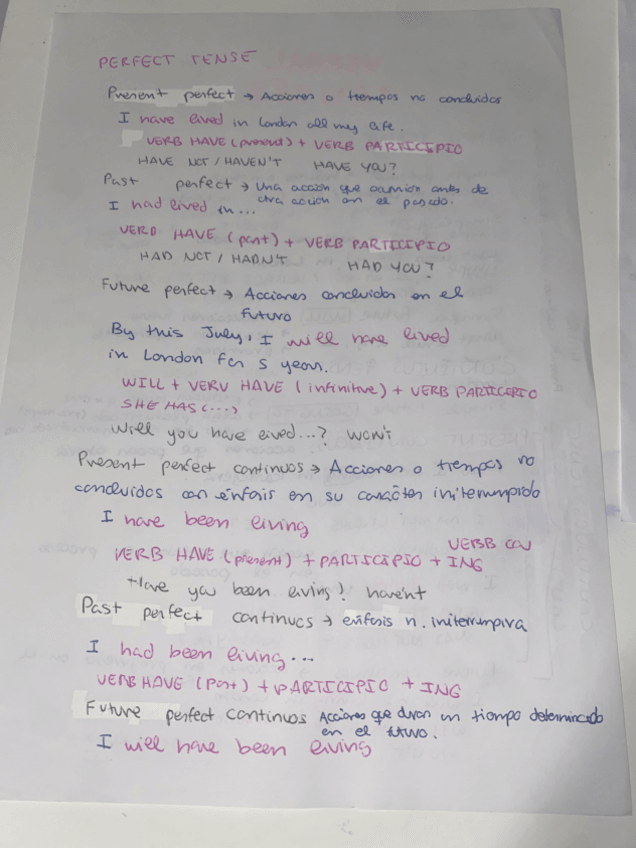 PERFECT TENSE
Present perfect → Acciones o tiempos no concluidos
I have lived in London all my life.
VERB HAVE (present) + VERB PARTICIPIO
HAVE NOT / HAVEN'T HAVE YOU?
Past perfect → una acción que ocurrior antes de
otra acción en el pasado.
I had lived in...
VERB HAVE (past) + VERB PARTICIPIO
HAD NOT / HADN'T HAD YOU?
Future perfect → Acciones concluidas en el
futuro
By this July, I will have lived
in London for 5 years.
WILL + VERV HAVE (infinitive) + VERB PARTICIPIO
SHE HAS (...)
Will you have lived...? WON'T
Present perfect continuos → Acciones o tiempos no
concluidos con énfasis en su carácter initerrumpido
I have been living
VERB CON
VERB HAVE (present) + PARTICIPIO + ING
Have you been living? haven't
Past perfect continuos → enfasis n. initerrumpiva
I had been living...
VERB HAVE (Past) + PARTICIPIO + ING
Future perfect continuos Acciones que duran un tiempo determinado
en el futuro.
I will have been living